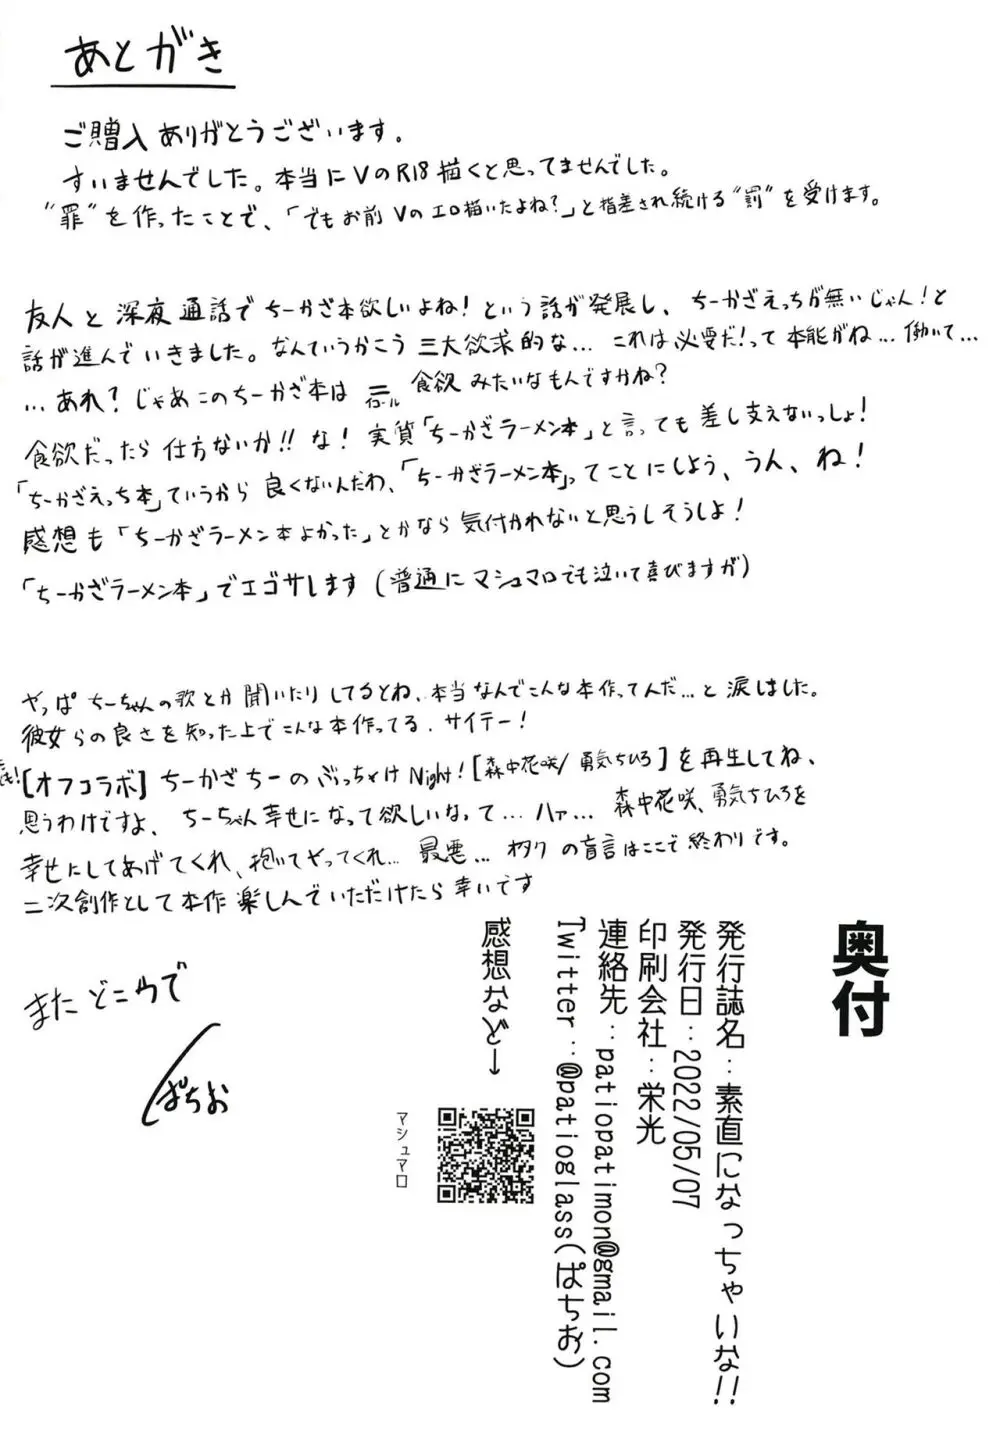 あとがき
ご購入ありがとうございます。
すいませんでした。本当にVのR18描くと思ってませんでした。
“罪”を作ったことで、「でもお前Vのエロ描いたよね?」と指差され続ける“罰”を受けます。
友人と深夜通話でちーかざ本欲しいよね!という話が発展し、ちーかざえっちが無いじゃん!と
話が進んでいきました。なんていうかこう三大欲求的な…これは必要だ!って本能がね…働いて…
…あれ?じゃあこのちーかざ本は=イコール食欲みたいなもんですかね?
食欲だったら仕方ないか!!な!実質「ちーかざラーメン本」と言っても差し支えないっしょ!
「ちーかざえっち本」ていうから良くないんだわ、「ちーかざラーメン本」ってことにしよう、うん、ね!
感想も「ちーかざラーメン本よかった」とかなら気付かれないと思うしそうしよ!
「ちーかざラーメン本」でエゴサします(普通にマシュマロでも泣いて喜びますが)
やっぱちーちゃんの歌とか聞いたりしてるとね、本当なんでこんな本作ってんだ…と涙しました。
彼女らの良さを知った上でこんな本作ってる、サイテー!
【オフコラボ】ちーかざちーのぶっちゃけNight!【森中花咲/勇気ちひろ】を再生してね、
思うわけですよ、ちーちゃん幸せになって欲しいなって…ハァ…森中花咲、勇気ちひろを
幸せにしてあげてくれ、抱いてやってくれ…最悪…オタクの盲言はここで終わりです。
二次創作として本作楽しんでいただけたら幸いです
またどこかで
ぱちお
奥付
発行誌名:素直になっちゃいな!!
発行日:2022/05/07
印刷会社:栄光
連絡先:patiopatimon@gmail.com
Twitter:@patioglass(ぱちお)
感想など→
マシュマロ